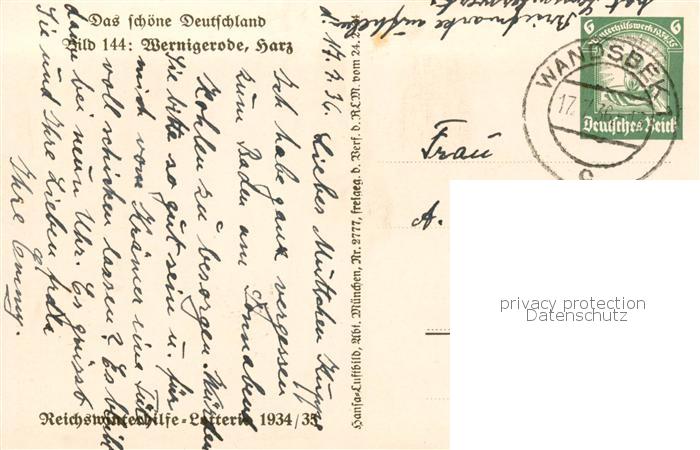 Das schöne Deutschland
Bild 144: Wernigerode, Harz
17.7.36.
Liebes Muttchen
Ich habe ganz vergessen
zum Baden am Sonnabend
Kohlen zu besorgen. Würden
Sie bitte so gut sein u. für
mich vom Krämer eine
voll schicken lassen? Es
dann bei neun Uhr. Es grüsst
Sie und Ihre Lieben
Ihre
Reichswinterhilfe-Lotterie 1934/35
Hansa-Luftbild, Abt. München, Nr. 2777, freigeg. d. Verf. d. RLM. vom 24.
Briefmarke
6 6
Winterhilfswerk 1934/35
Deutsches Reich
WANDSBEK 1
17. 7. 36
c
Frau
A.
privacy protection
Datenschutz